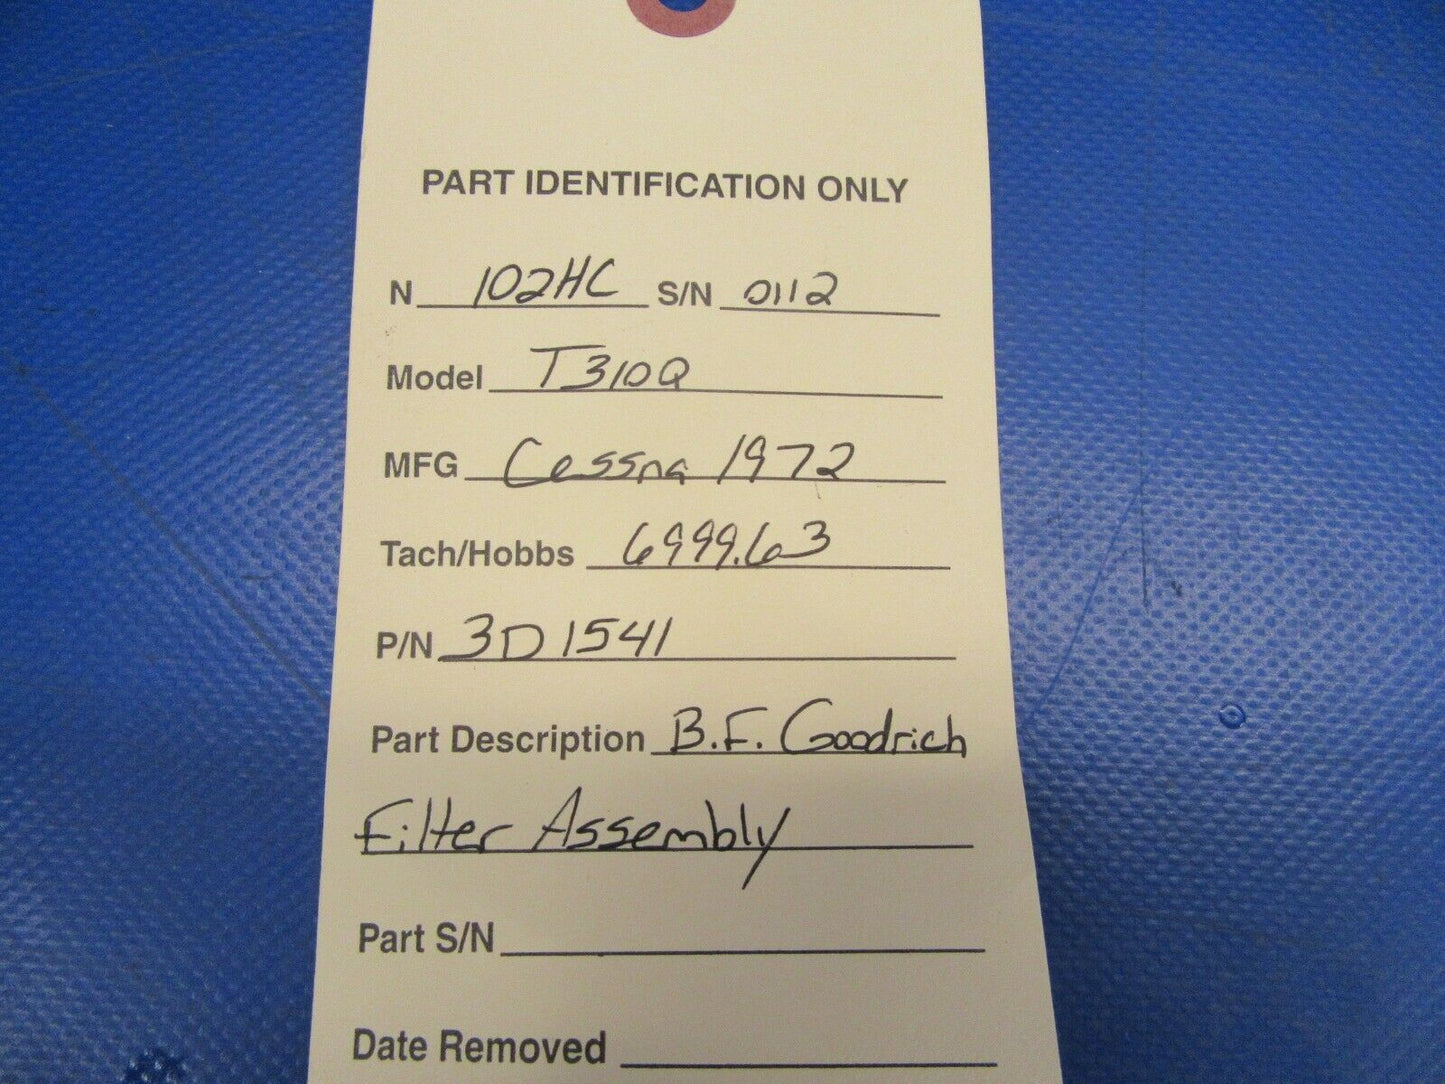 PART IDENTIFICATION ONLY
N 102HC S/N 0112
Model T310Q
MFG Cessna 1972
Tach/Hobbs 6999.63
P/N 3D1541
Part Description B.F. Goodrich
Filter Assembly
Part S/N
Date Removed